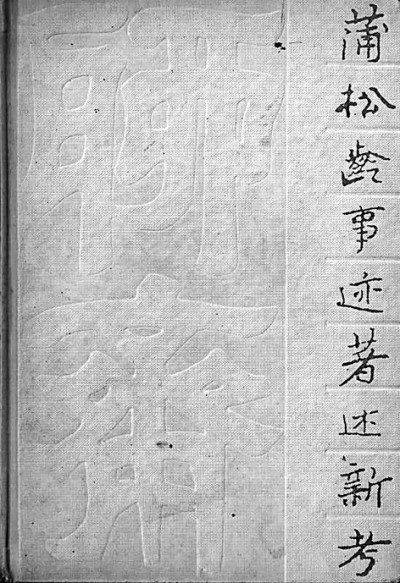 蒲松齡事迹著述新考
聊齋